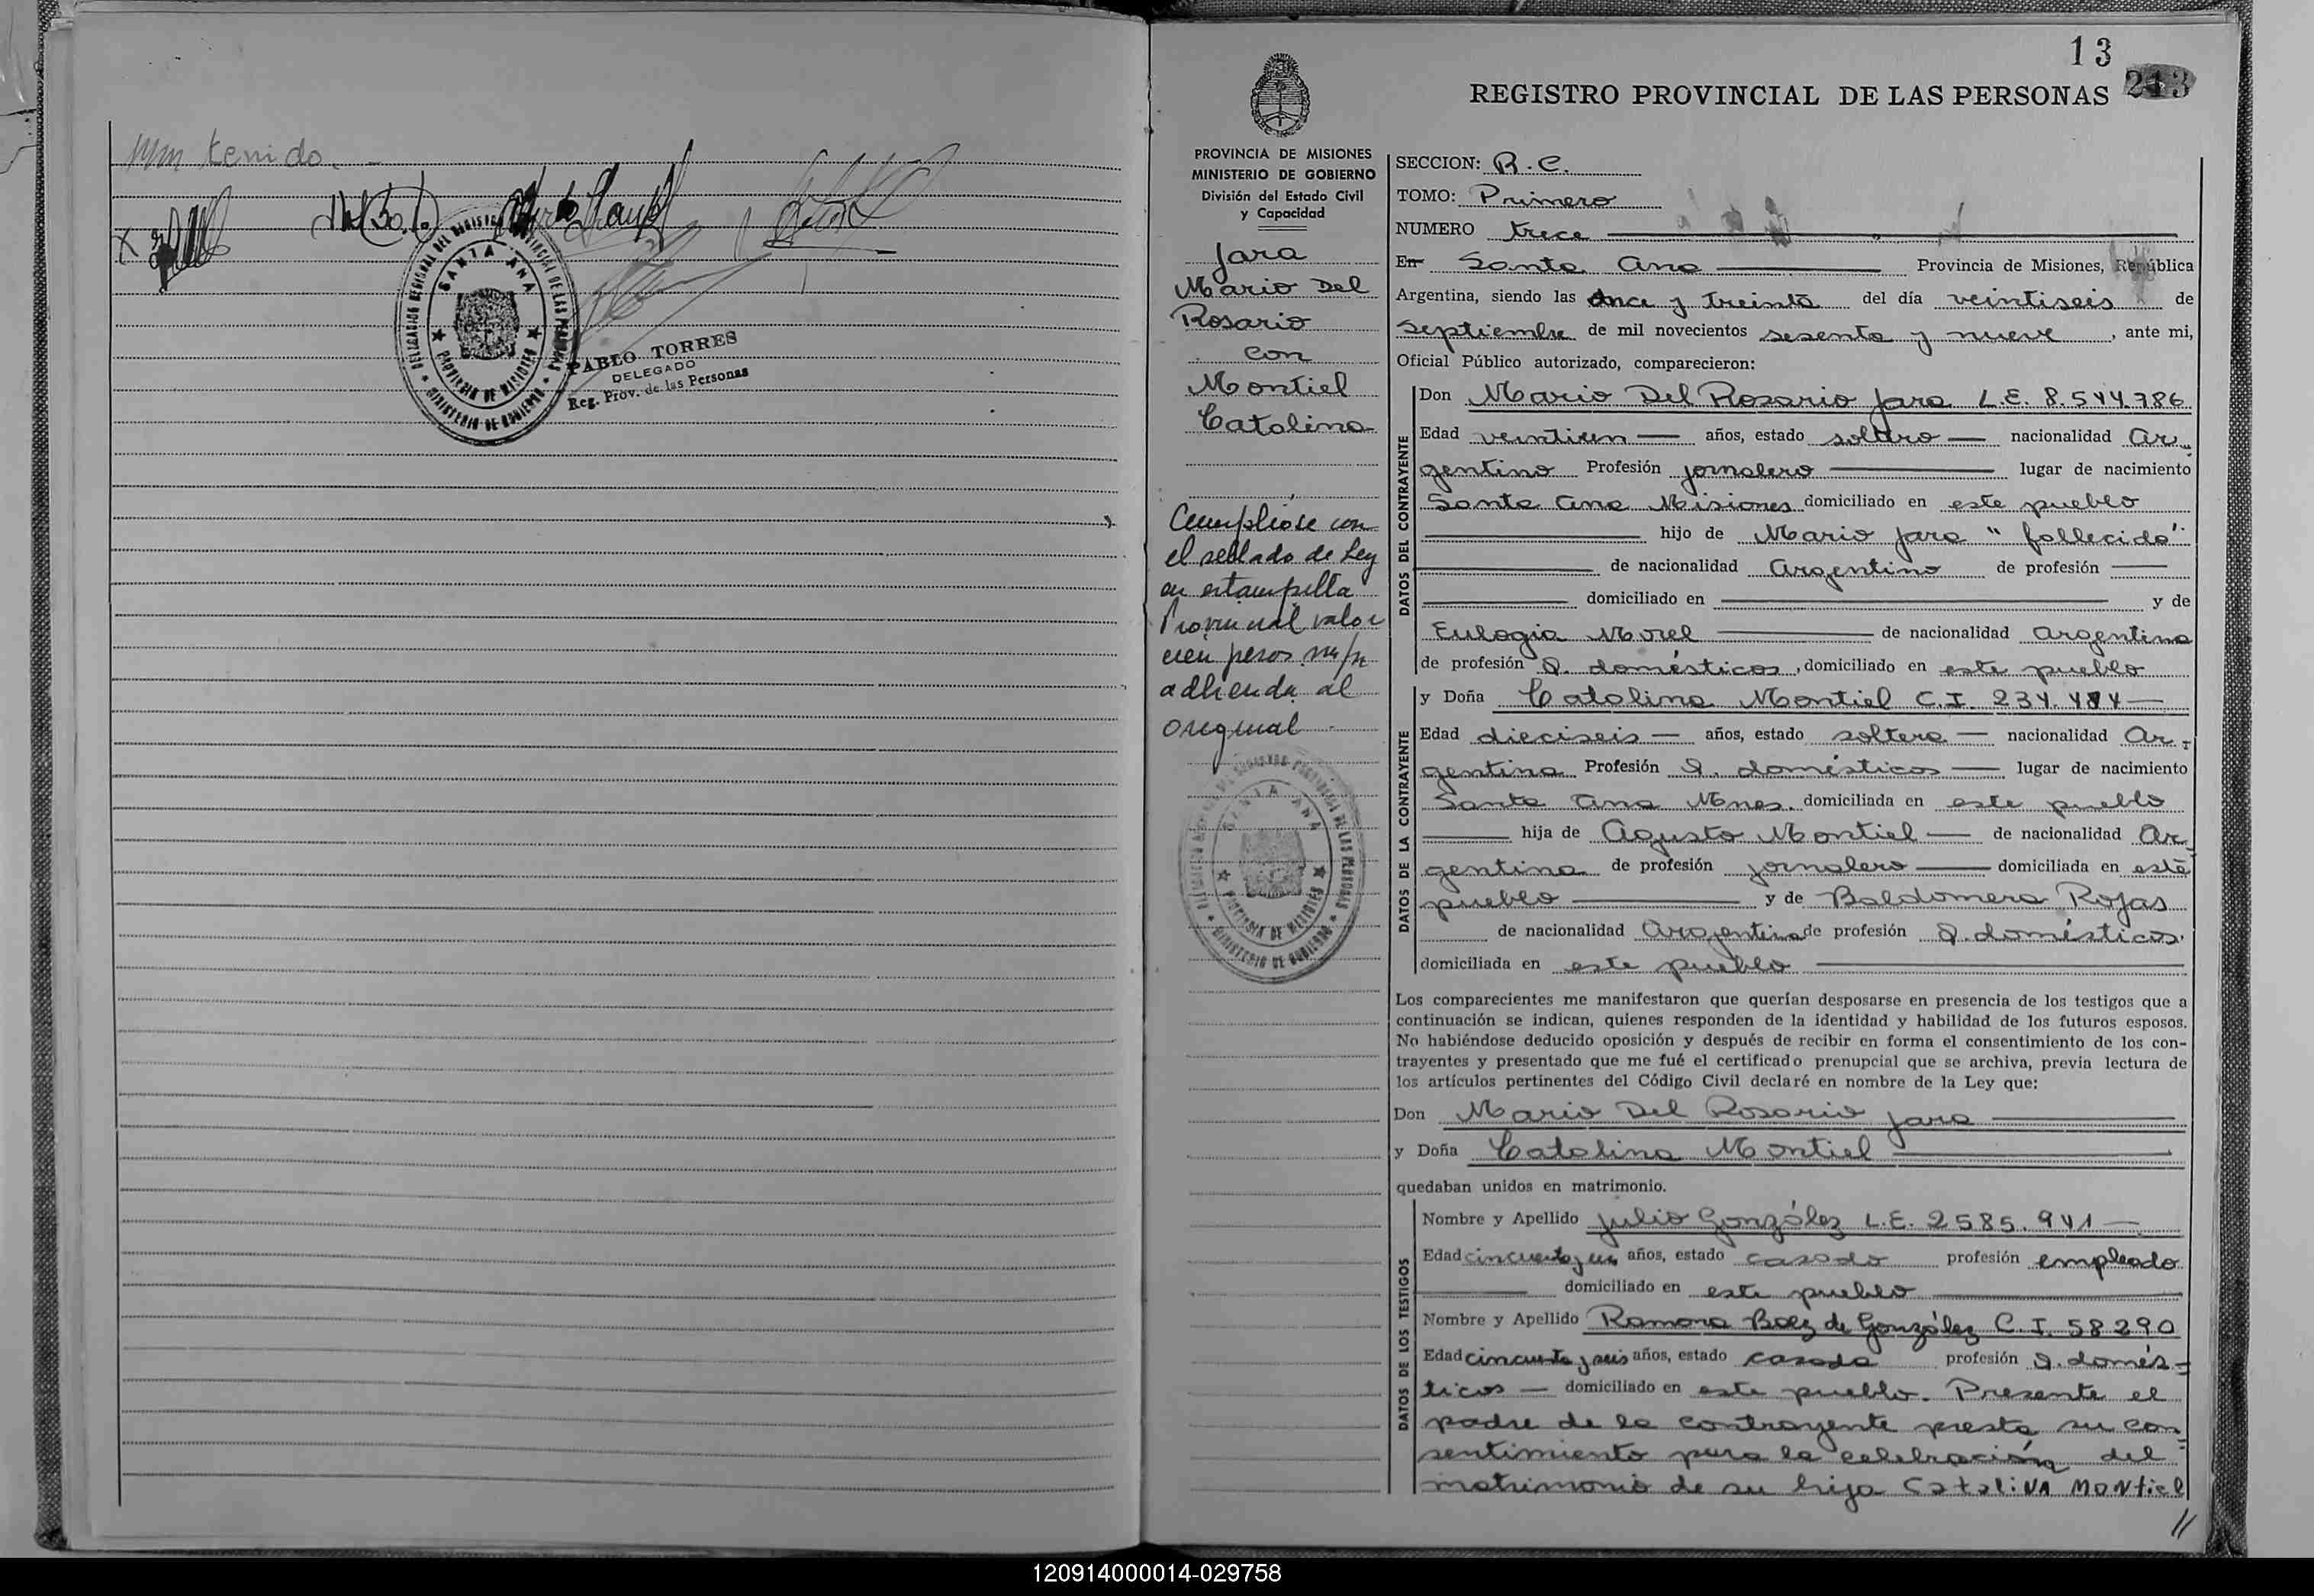 tenido.
SANTA ANA
PROVINCIA DE MISIONES
MINISTERIO DE GOBIERNO
PABLO TORRES
DELEGADO
Reg. Prov. de las Personas
13
213
REGISTRO PROVINCIAL DE LAS PERSONAS
PROVINCIA DE MISIONES
MINISTERIO DE GOBIERNO
División del Estado Civil
y Capacidad
Jara
Mario Del
Rosario
con
Montiel
Catalina
Cumplióse con
el sellado de Ley
en estampilla
Provincial valor
cien pesos m/n
adherida al
original
SANTA ANA
PROVINCIA DE MISIONES
MINISTERIO DE GOBIERNO
SECCION: R.C.
TOMO: Primero
NUMERO trece
En Santa Ana Provincia de Misiones, República
Argentina, siendo las once y treinta del día veintiseis de
Septiembre de mil novecientos sesenta y nueve, ante mi,
Oficial Público autorizado, comparecieron:
DATOS DEL CONTRAYENTE
Don Mario Del Rosario Jara L.E. 8.544.786
Edad veintiun — años, estado soltero — nacionalidad Ar-
gentino Profesión jornalero lugar de nacimiento
Santa Ana Misiones domiciliado en este pueblo
hijo de Mario Jara "fallecido"
de nacionalidad Argentino de profesión
domiciliado en y de
Eulogia Morel de nacionalidad argentina
de profesión Q. domésticos, domiciliado en este pueblo
DATOS DE LA CONTRAYENTE
y Doña Catalina Montiel C.I. 234.484 —
Edad dieciseis — años, estado soltera — nacionalidad Ar-
gentina Profesión Q. domésticos — lugar de nacimiento
Santa Ana Mnes. domiciliada en este pueblo
hija de Agusto Montiel — de nacionalidad Ar-
gentina de profesión jornalero domiciliada en este
pueblo y de Baldomera Rojas
de nacionalidad Argentina de profesión Q. domésticos,
domiciliada en este pueblo
Los comparecientes me manifestaron que querían desposarse en presencia de los testigos que a
continuación se indican, quienes responden de la identidad y habilidad de los futuros esposos.
No habiéndose deducido oposición y después de recibir en forma el consentimiento de los con-
trayentes y presentado que me fué el certificado prenupcial que se archiva, previa lectura de
los artículos pertinentes del Código Civil declaré en nombre de la Ley que:
Don Mario Del Rosario Jara
y Doña Catalina Montiel
quedaban unidos en matrimonio.
DATOS DE LOS TESTIGOS
Nombre y Apellido Julio González L.E. 2585.941 —
Edad cincuenta y un años, estado casado profesión empleado
domiciliado en este pueblo
Nombre y Apellido Ramona Baez de González C.I. 58290
Edad cincuenta y seis años, estado casada profesión Q. domés-
ticos — domiciliado en este pueblo. Presente el
padre de la contrayente presta su con-
sentimiento para la celebración del
matrimonio de su hija Catalina Montiel
//
120914000014-029758